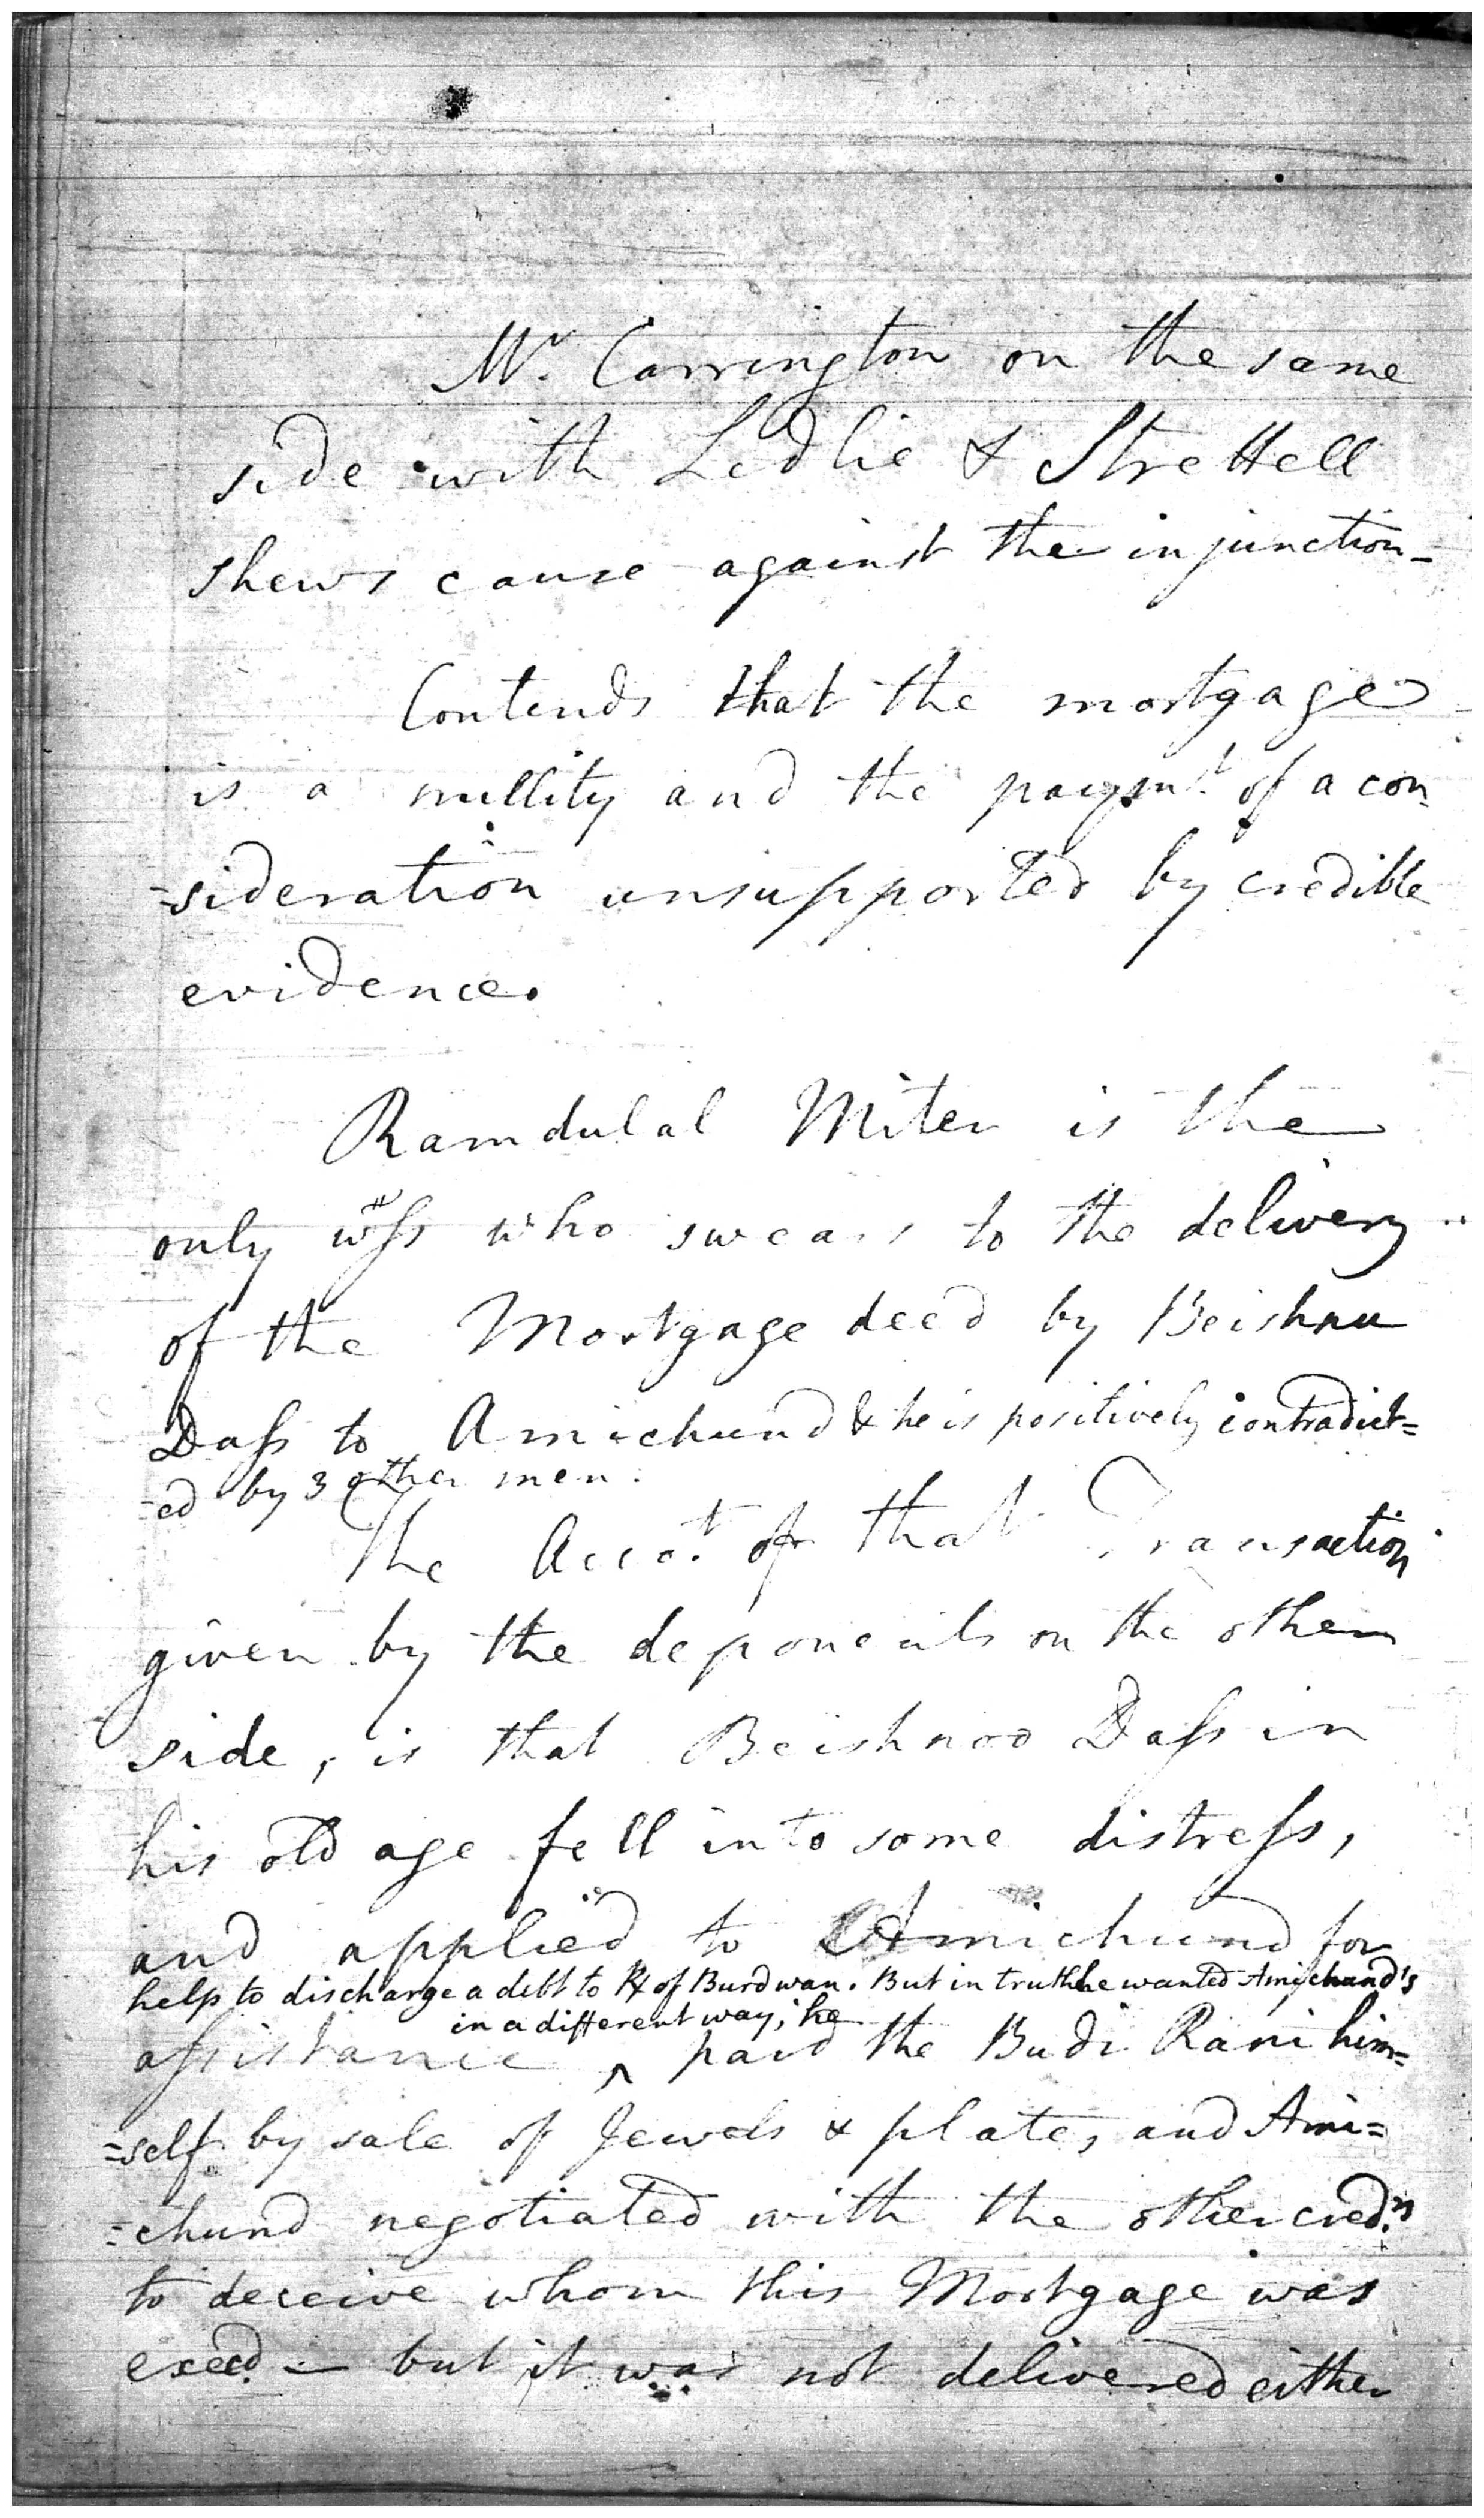 Mr. Carrington on the same
side with Ledlie & Strettell
shews cause against the injunction -
Contends that the mortgage
is a nullity and the paymt. of a con=
=sideration unsupported by credible
evidence.
Ramdulal Miter is the
only wss who swears to the delivery
of the Mortgage deed by Beishnu
Dass to Amichund & he is positively contradict=
=ed by 3 other men.
The Accot. of that Transaction
given by the deponents on the other
side, is that Beishnoo Dass in
his old age fell into some distress,
and applied to Amichund for
help to discharge a debt to R of Burdwan. But in truth he wanted Amichund's
in a different way; he
assistance ^ paid the Budi Rani him=
=self by sale of Jewels & plate, and Ami=
=chund negotiated with the other credrs.
to deceive whom this Mortgage was
execd. - but it was not delivered either